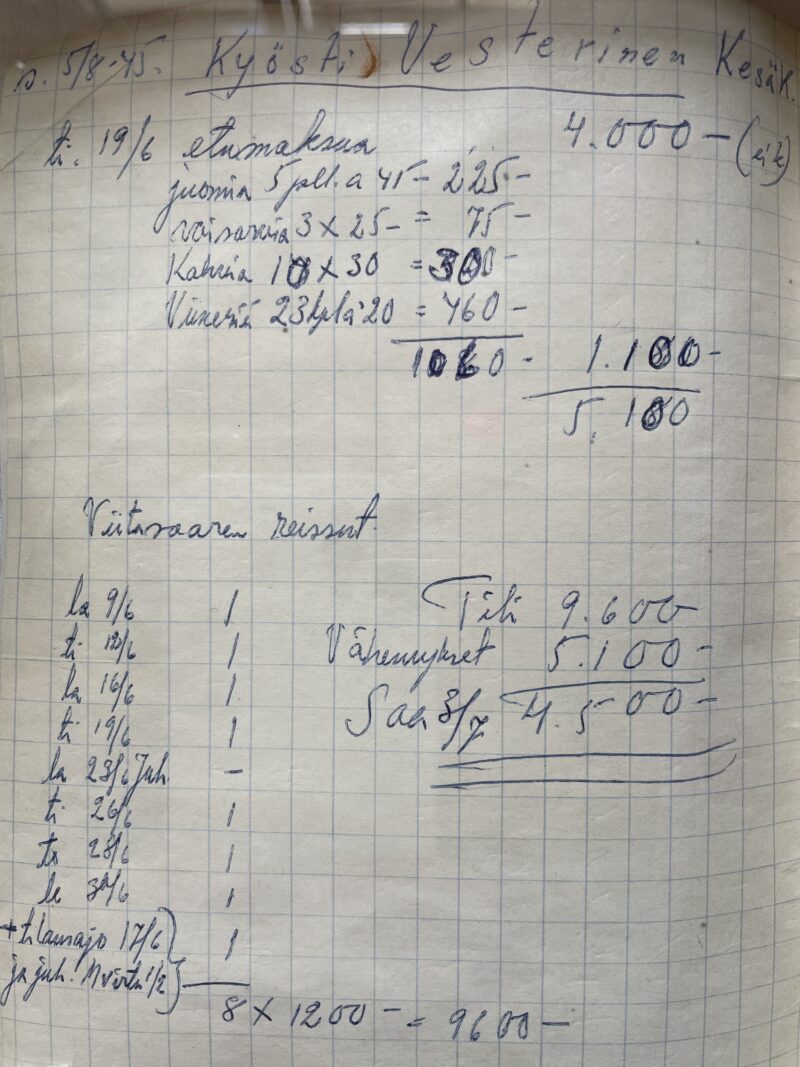 s. 5/8-45. Kyösti Vesterinen Kesäk.
ti. 19/6 etumaksua 4.000— (eik)
juomia 5 pll. a 45— 225.—
voisarvia 3 x 25— = 75—
Kahvia 10 x 30 = 300—
Viineriä 23 kpl à 20 = 460—
1060— 1.100—
5.100
Viitasaaren reissut.
la 9/6 1
ti 12/6 1
la 16/6 1
ti 19/6 1
la 23/6 Juh. —
ti 26/6 1
to 28/6 1
la 30/6 1
+ tilausajo 17/6 1
ja juh. 1/2
8 x 1200— = 9600—
Tili 9.600
Vähennykset 5.100—
Saa 3/7 4.500—